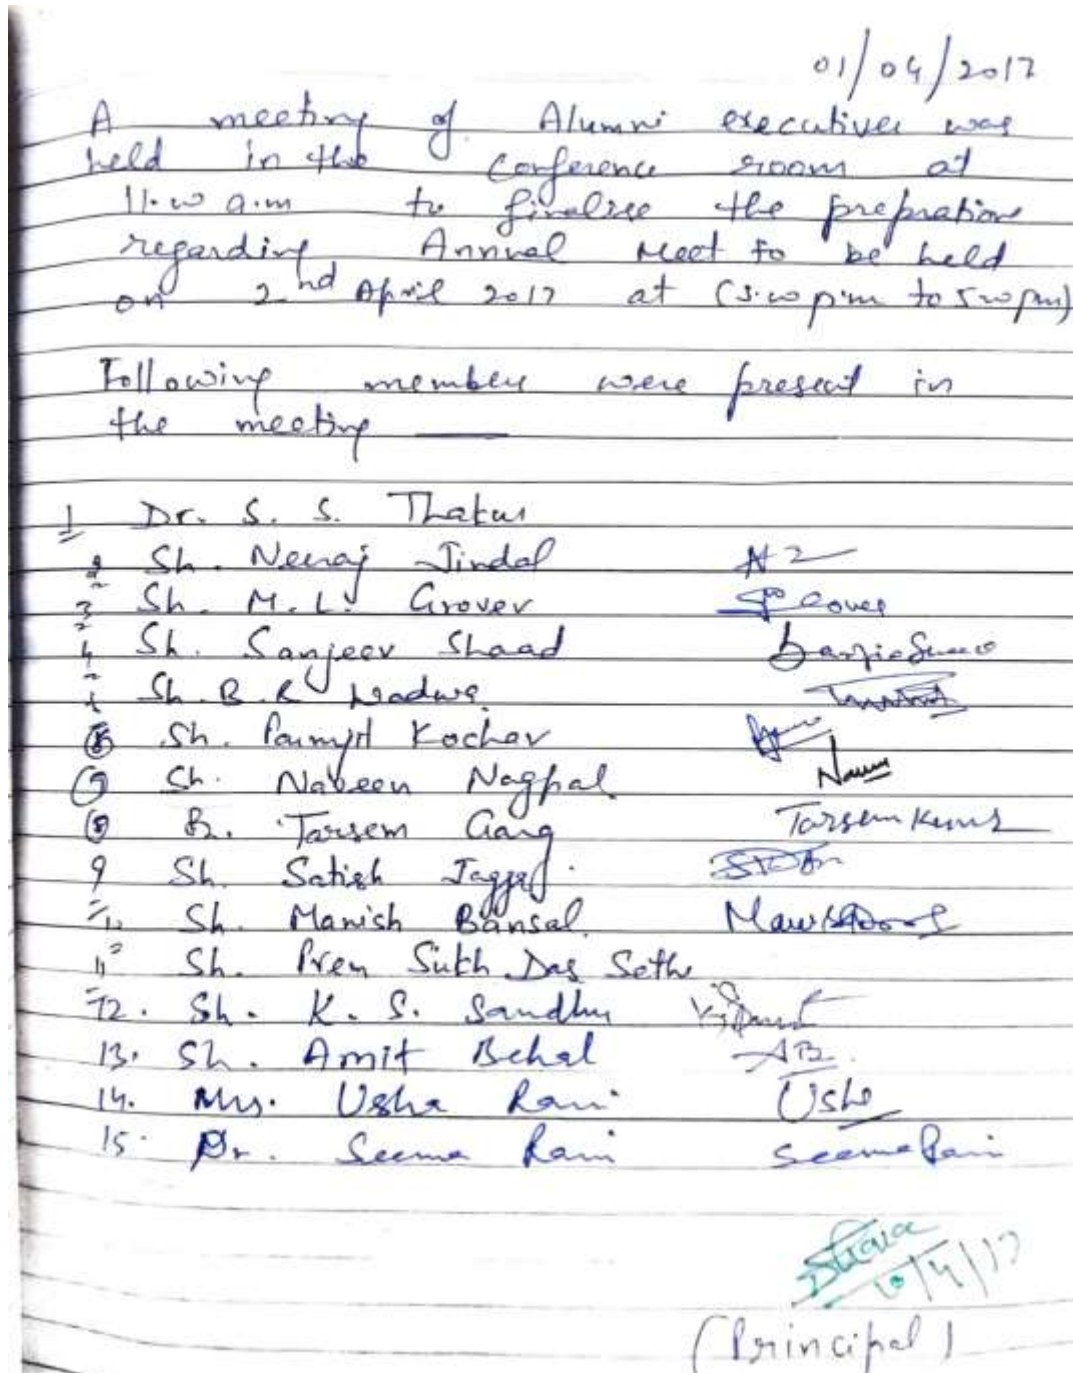 01/04/2017
A meeting of Alumni executives was
held in the Conference room at
11.00 a.m to finalise the prepration
regarding Annual Meet to be held
on 2nd April 2017 at (3.00 p.m to 5.00 pm)
Following members were present in
the meeting —
1 Dr. S. S. Thakur
2 Sh. Neeraj Jindal
3 Sh. M. L. Grover Grover
4 Sh. Sanjeev Shaad
Sh. B. R
6 Sh. Kochar
7 Sh. Naveen Nagpal
8 Tarsem Garg Tarsem Kumar
9 Sh. Satish Jagga
10 Sh. Manish Bansal
11 Sh. Prem Sukh Das Sethi
12. Sh. K. S. Sandhu
13. Sh. Amit Behal AB
14. Mrs. Usha Rani Usha
15. Dr. Seema Rani Seema Rani
(Principal)